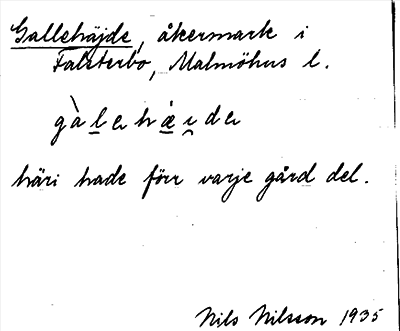 Gallehäjde, åkermark i
Falsterbo, Malmöhus l.
gàlǝhæɪdǝ
häri hade förr varje gård del.
Nils Nilsson 1935